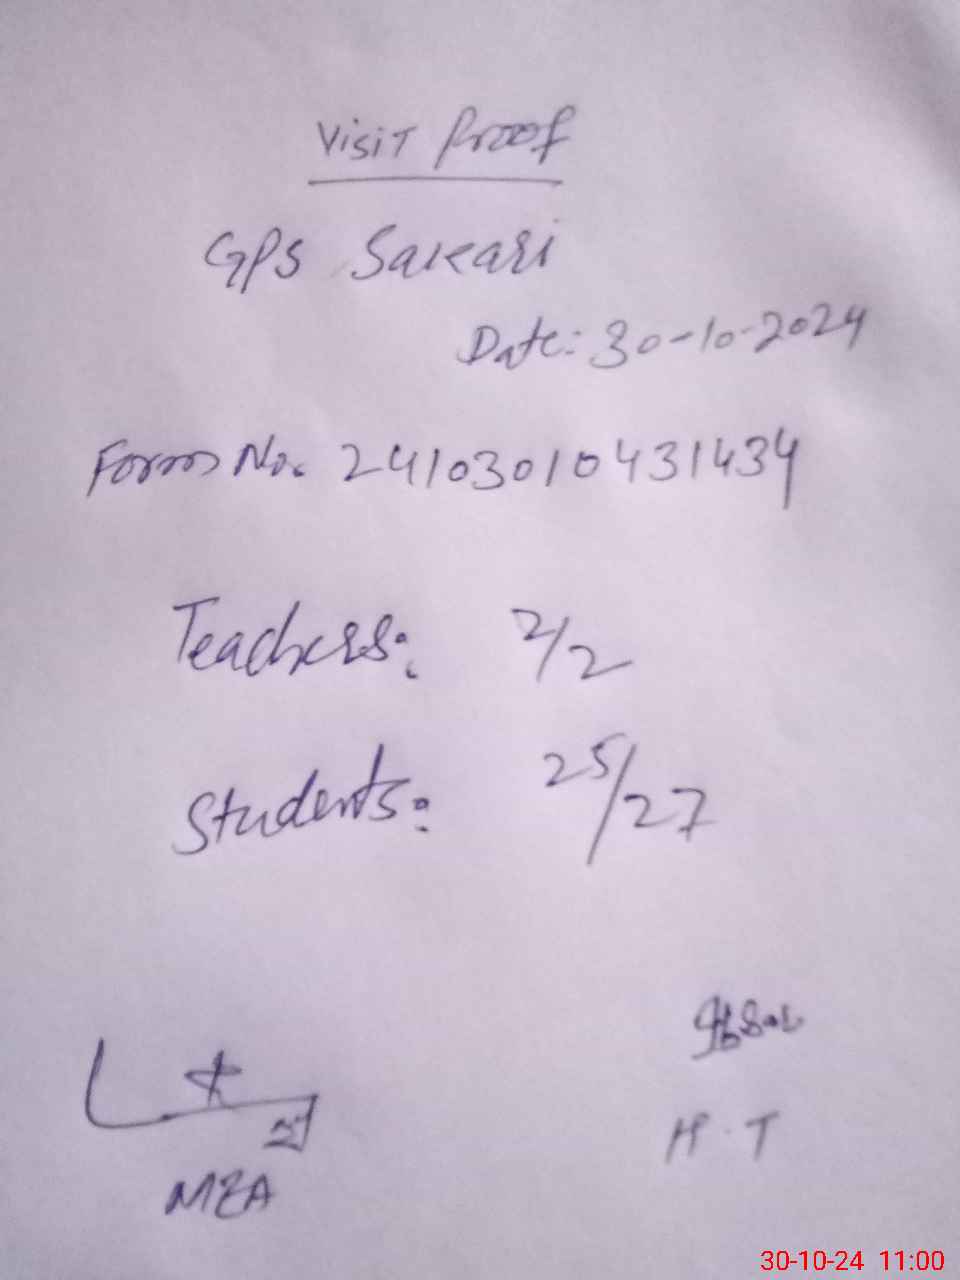 Visit Proof
GPS Sakari
Date: 30-10-2024
Form No. 24103010431434
Teachers: 2/2
Students: 25/27
MEA
H.T
30-10-24 11:00